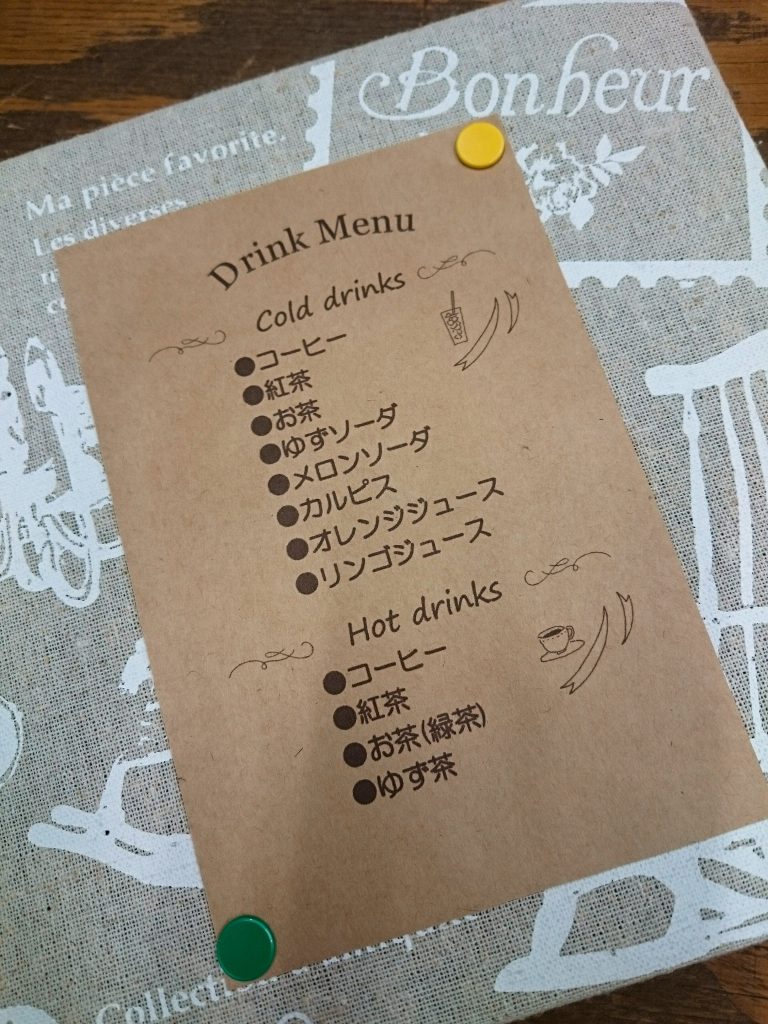 Bonheur
Ma pièce favorite.
Les diverses
Drink Menu
Cold drinks
●コーヒー
●紅茶
●お茶
●ゆずソーダ
●メロンソーダ
●カルピス
●オレンジジュース
●リンゴジュース
Hot drinks
●コーヒー
●紅茶
●お茶(緑茶)
●ゆず茶
Collection